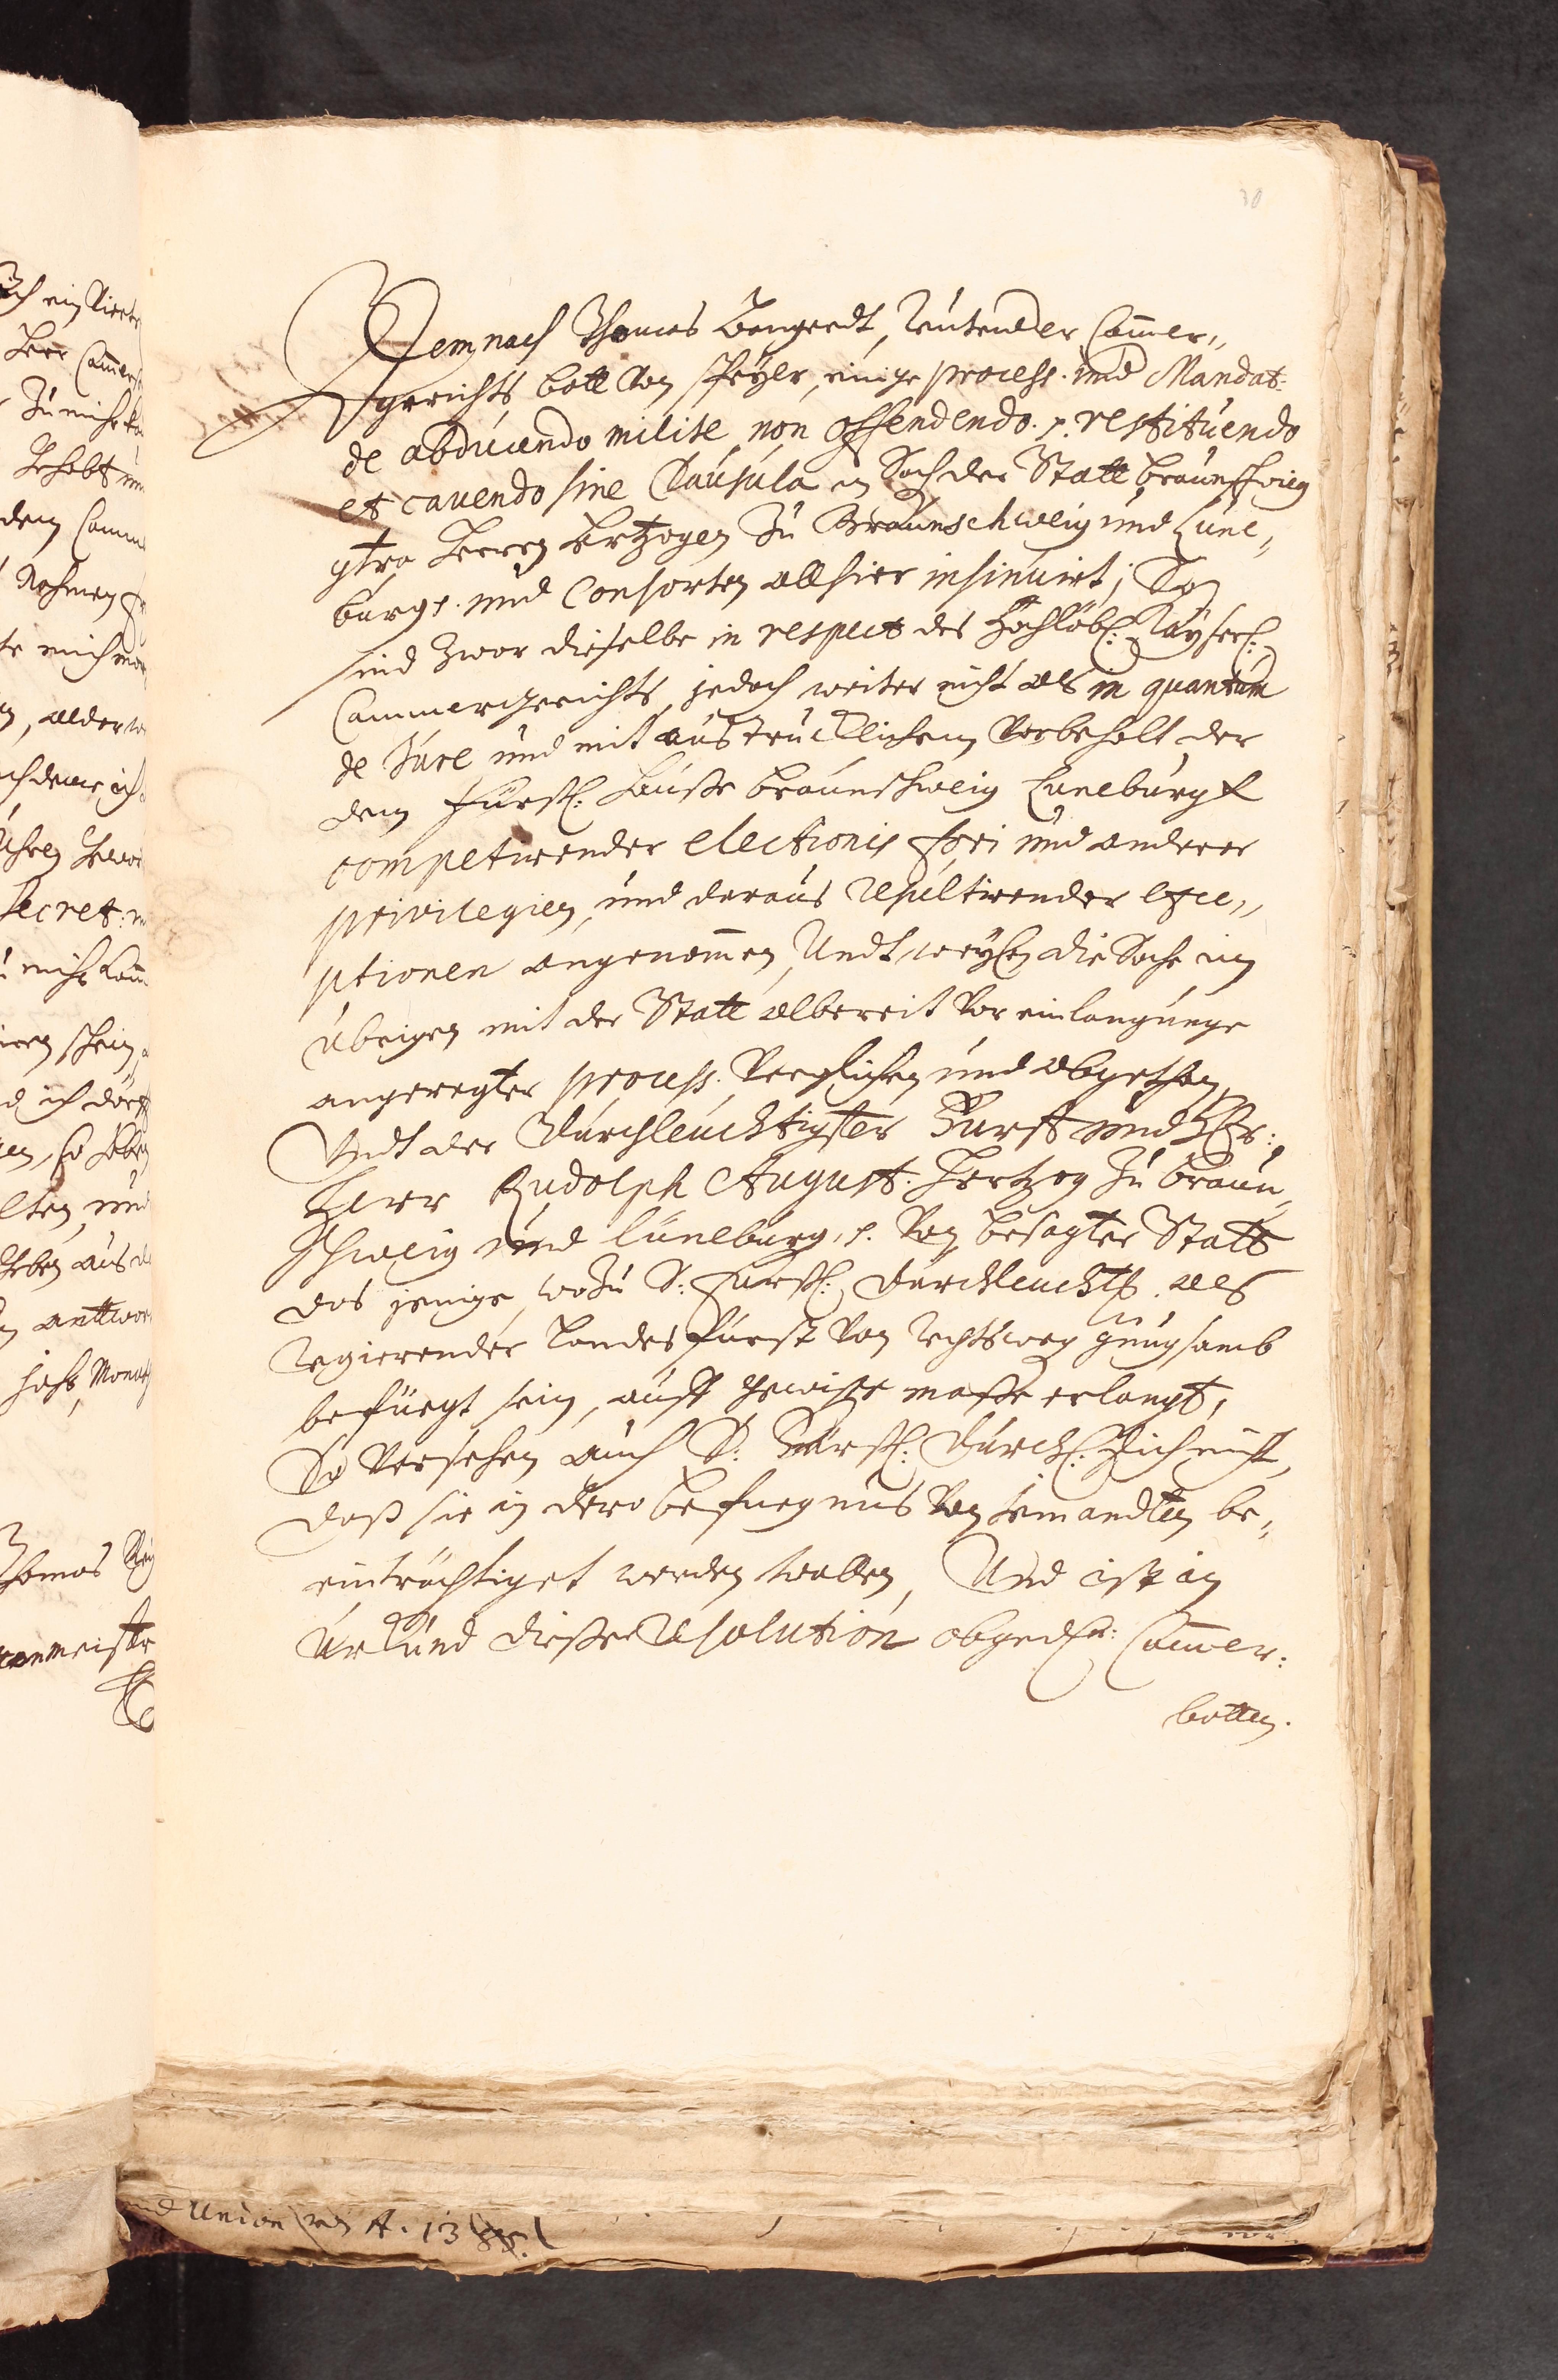 30
Demnach Thomas Bangerdt, Reutender Cammer,,
gerichts bott von Speyer, einige process. und Mandat:
de abducendo milite, non offendendo. p. restituendo
et cavendo sine Clausula in Sach der Statt braunschweig
gtra Herren Hertzogen Zu Braunschweig und Lüne,,
burg p. und Consorten allhier insinuirt; So
sind zwar dieselbe in respect des Hochlöbl: Kayserl:
Cammergerichts, jedoch weiter nicht als in quantum
de Jure und mit austrücklichem Vorbehalt der
dem Fürstl: Hauße braunschweig Luneburg
competirender electionis fori und anderer
privilegien, und daraus resultirender exce,,
ptionen angenommen, Undt weyln die Sache im
übrigen mit der Statt albereit vor einlangunge
angeregter process. verglichen und abgethan,
Undt der Durchleuchtigster Fürst und Herr:
Herr Rudolph August. Hertzog Zu braun,,
schweig und Lüneburg. p. Von besagter Statt
das jenige, wozu S: Fürstl: Durchleucht. als
regierender Landes Fürst von rechtsweg gnugsamb
befüegt sein, auff gewiße maße erlangt,
So versehen auch S: Fürstl: Durchl: Sich nicht,
daß sie in dero befuegnus von jemandten be,,
einträchtiget werden wollen, Und ist in
Urkund dießer Resolution obgedtn: Cammer:
botten.
Herr Cammer
Zu mihr
gehabt
dem Camm
Nahmen
secret:
antwor
Monat
Thomas
Union A. 13